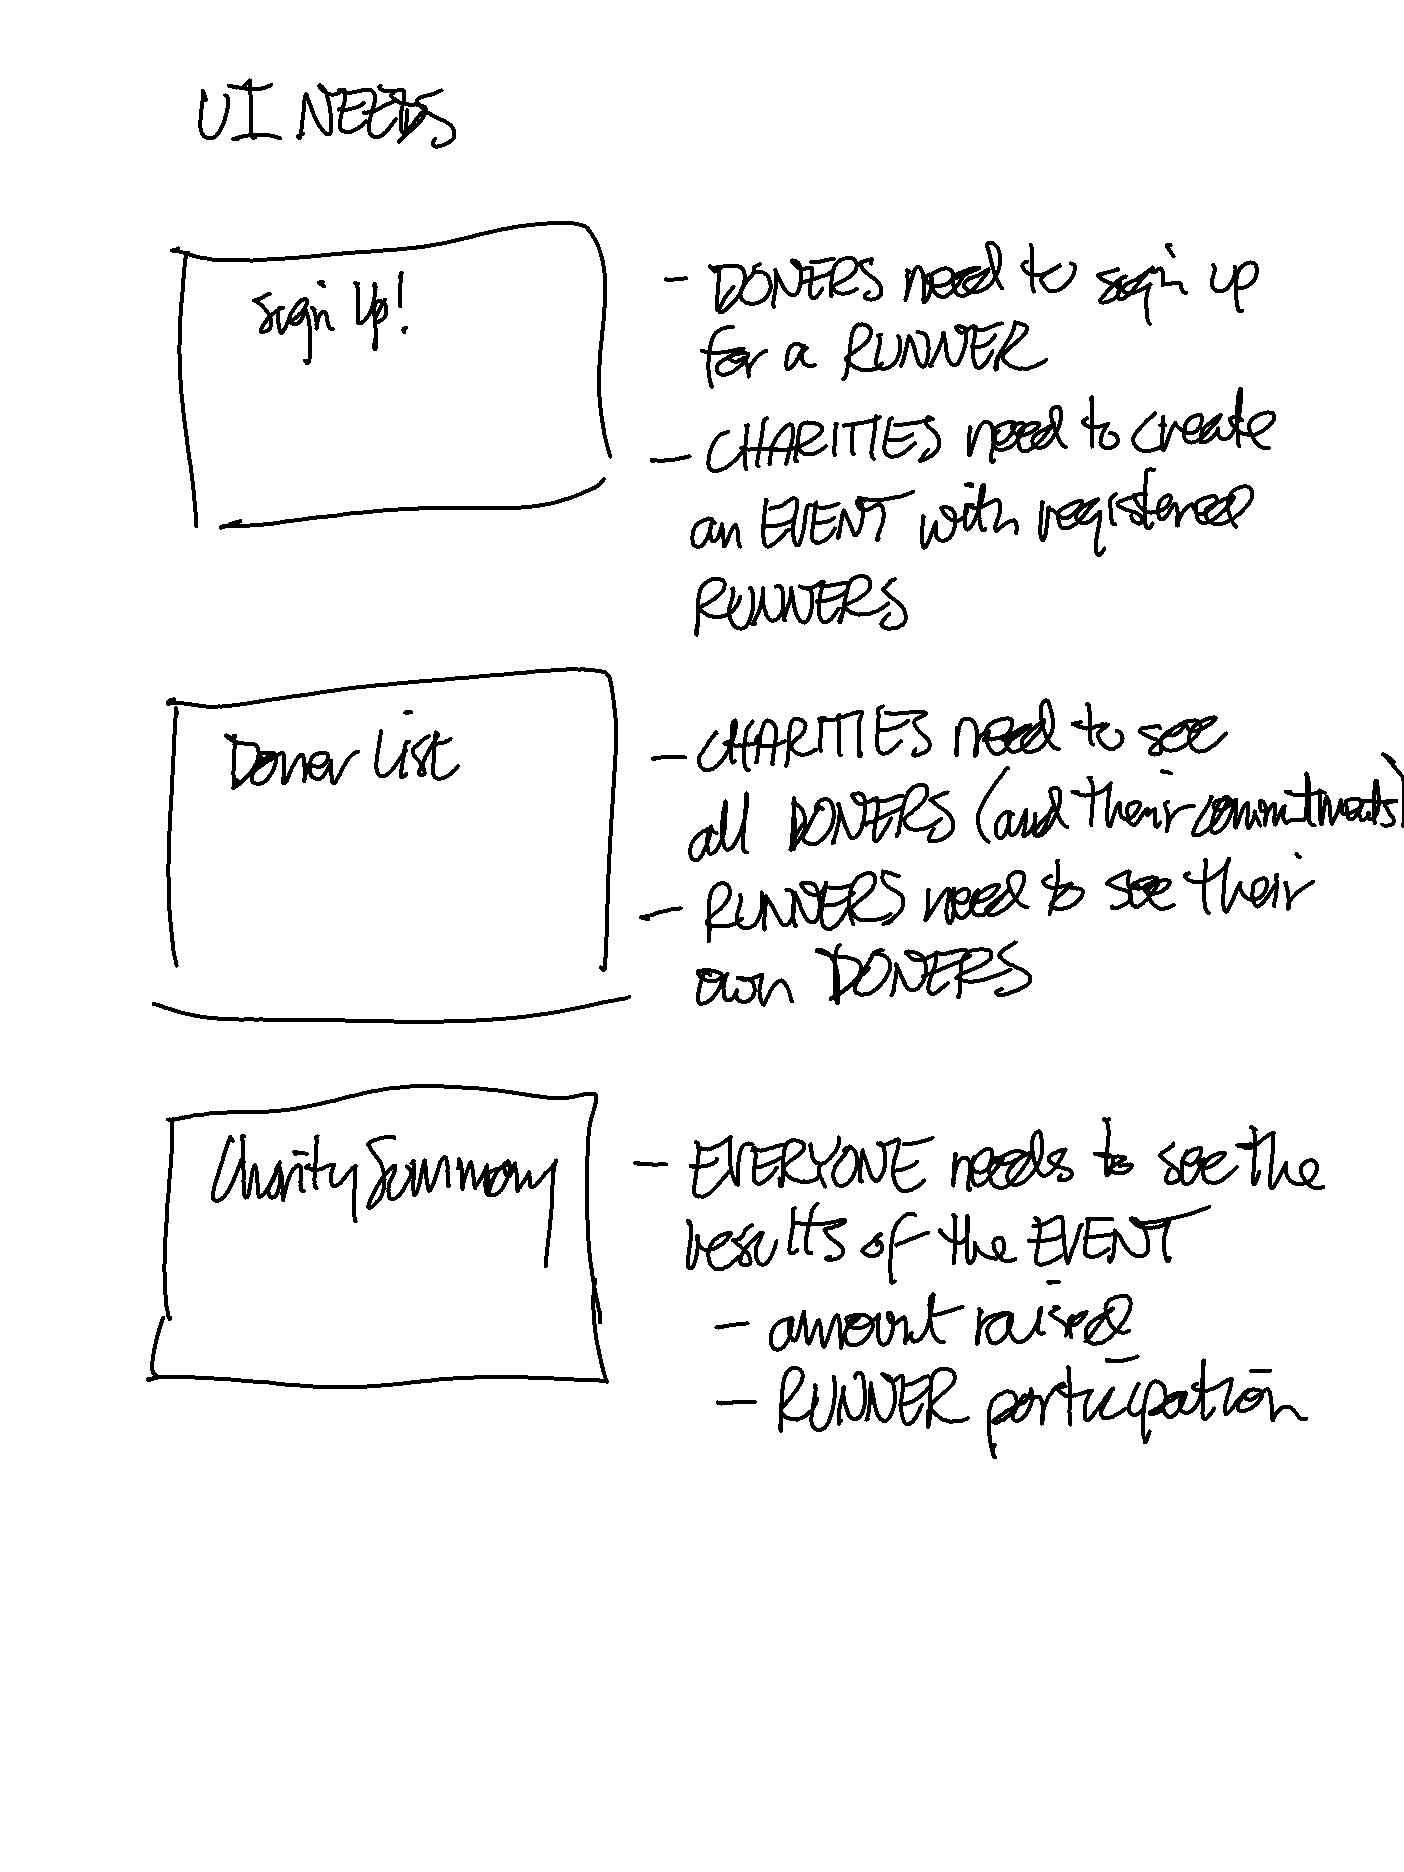 UI NEEDS
Sign Up!
- DONERS need to sign up
for a RUNNER
- CHARITIES need to create
an EVENT with registered
RUNNERS
Doner List
- CHARITIES need to see
all DONERS (and their commitments)
- RUNNERS need to see their
own DONERS
Charity Summary
- EVERYONE needs to see the
results of the EVENT
- amount raised
- RUNNER participation